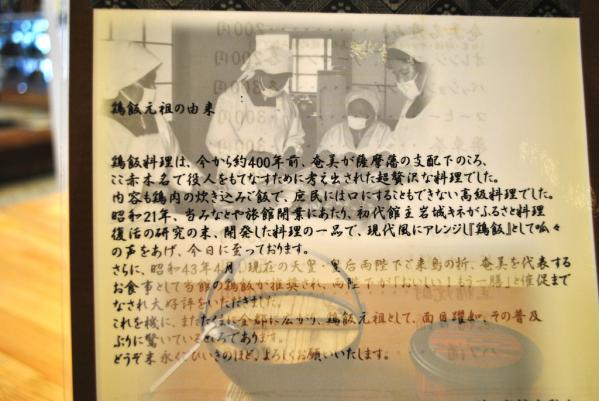 鶏飯元祖の由来
鶏飯料理は、今から約400年前、奄美が薩摩藩の支配下のころ、
ここ赤木名で役人をもてなすために考え出された超贅沢な料理でした。
内容も鶏肉の炊き込みご飯で、庶民には口にすることもできない高級料理でした。
昭和21年、当みなとや旅館開業にあたり、初代館主岩城キネがふるさと料理
復活の研究の末、開発した料理の一品で、現代風にアレンジし『鶏飯』として呱々
の声をあげ、今日に至っております。
さらに、昭和43年4月、現在の天皇・皇后両陛下ご来島の折、奄美を代表する
お食事として当館の鶏飯が推奨され、両陛下が「おいしい！もう一膳」と催促まで
なされ大好評をいただきました。
これを機に、またたく に全郡に広がり、鶏飯元祖として、面目躍如、その普及
ぶりに驚いているところであります。
どうぞ末永くひいきのほど、よろしくお願いいたします。